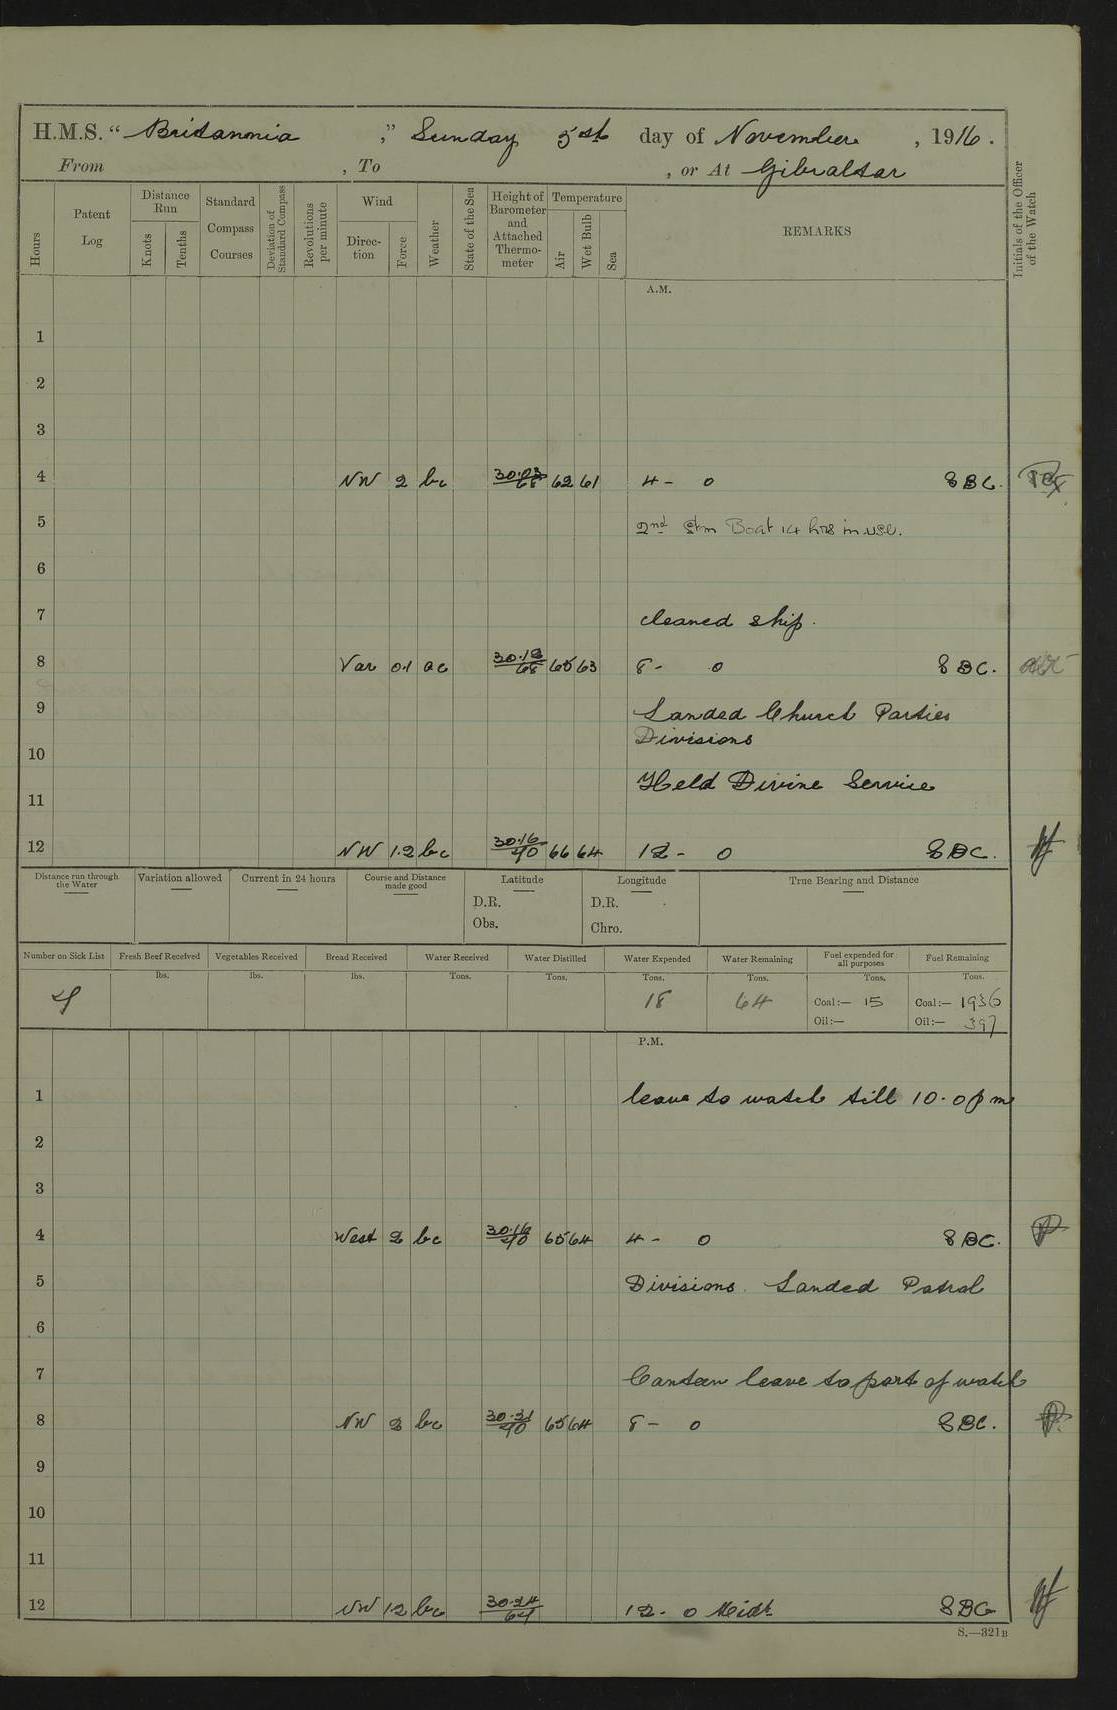 H.M.S. "Britannia," Sunday 5st day of November, 1916.
From , To , or At Gibraltar
Hours
Patent Log
Distance Run
Knots
Tenths
Standard Compass Courses
Deviation of Standard Compass
Revolutions per minute
Wind
Direction
Force
Weather
State of the Sea
Height of Barometer and Attached Thermometer
Temperature
Air
Wet Bulb
Sea
REMARKS
Initials of the Officer of the Watch
A.M.
1
2
3
4 NW 2 bc 30.03/68 62 61 4 - 0 SBC.
5 2nd Stm Boat 14 hrs in use.
6
7 cleaned ship.
8 Var 0.1 oc 65 63 8 - 0 SBC.
9 Landed Church Parties
Divisions
10
Held Divine Service
11
12 NW 1.2 bc 30.16/70 66 64 12 - 0 SBC.
Distance run through the Water
Variation allowed
Current in 24 hours
Course and Distance made good
Latitude
D.R.
Obs.
Longitude
D.R.
Chro.
True Bearing and Distance
Number on Sick List
Fresh Beef Received
Vegetables Received
Bread Received
Water Received
Water Distilled
Water Expended
Water Remaining
Fuel expended for all purposes
Fuel Remaining
lbs. lbs. lbs. Tons. Tons. Tons. Tons. Tons. Tons.
18 64 Coal:— 15 Coal:— 1936
Oil:— Oil:— 397
P.M.
1 leave to watch till 10.0 pm
2
3
4 West 2 bc 30.16/70 65 64 4 - 0 SBC.
5 Divisions. Landed Patrol
6
7 Canteen leave to part of watch
8 NW 2 bc 65 64 8 - 0 SBC.
9
10
11
12 NW 1.2 bc 30.24 12 - 0 Midt SBC
S.—321B